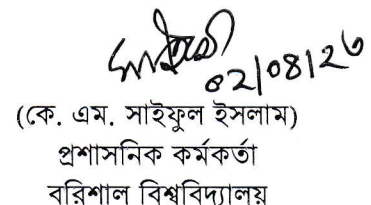 ০২/০৪/২৬
(কে. এম. সাইফুল ইসলাম)
প্রশাসনিক কর্মকর্তা
বরিশাল বিশ্ববিদ্যালয়